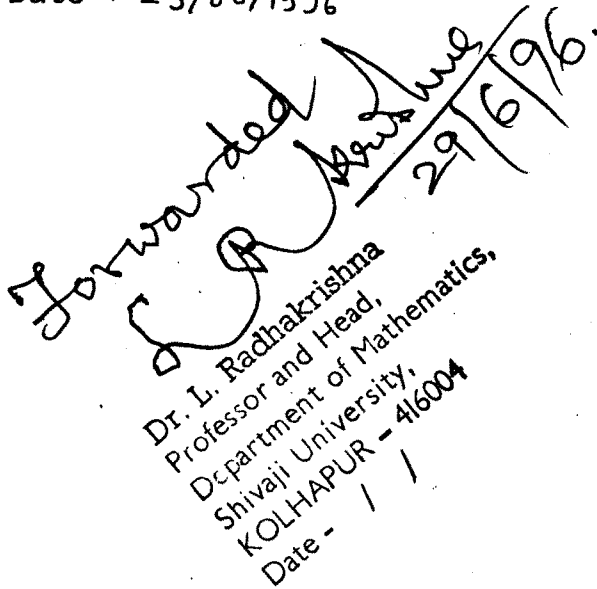 Forwarded
29/6/96.
Dr. L. Radhakrishna
Professor and Head,
Department of Mathematics,
Shivaji University,
KOLHAPUR - 416004
Date - / /